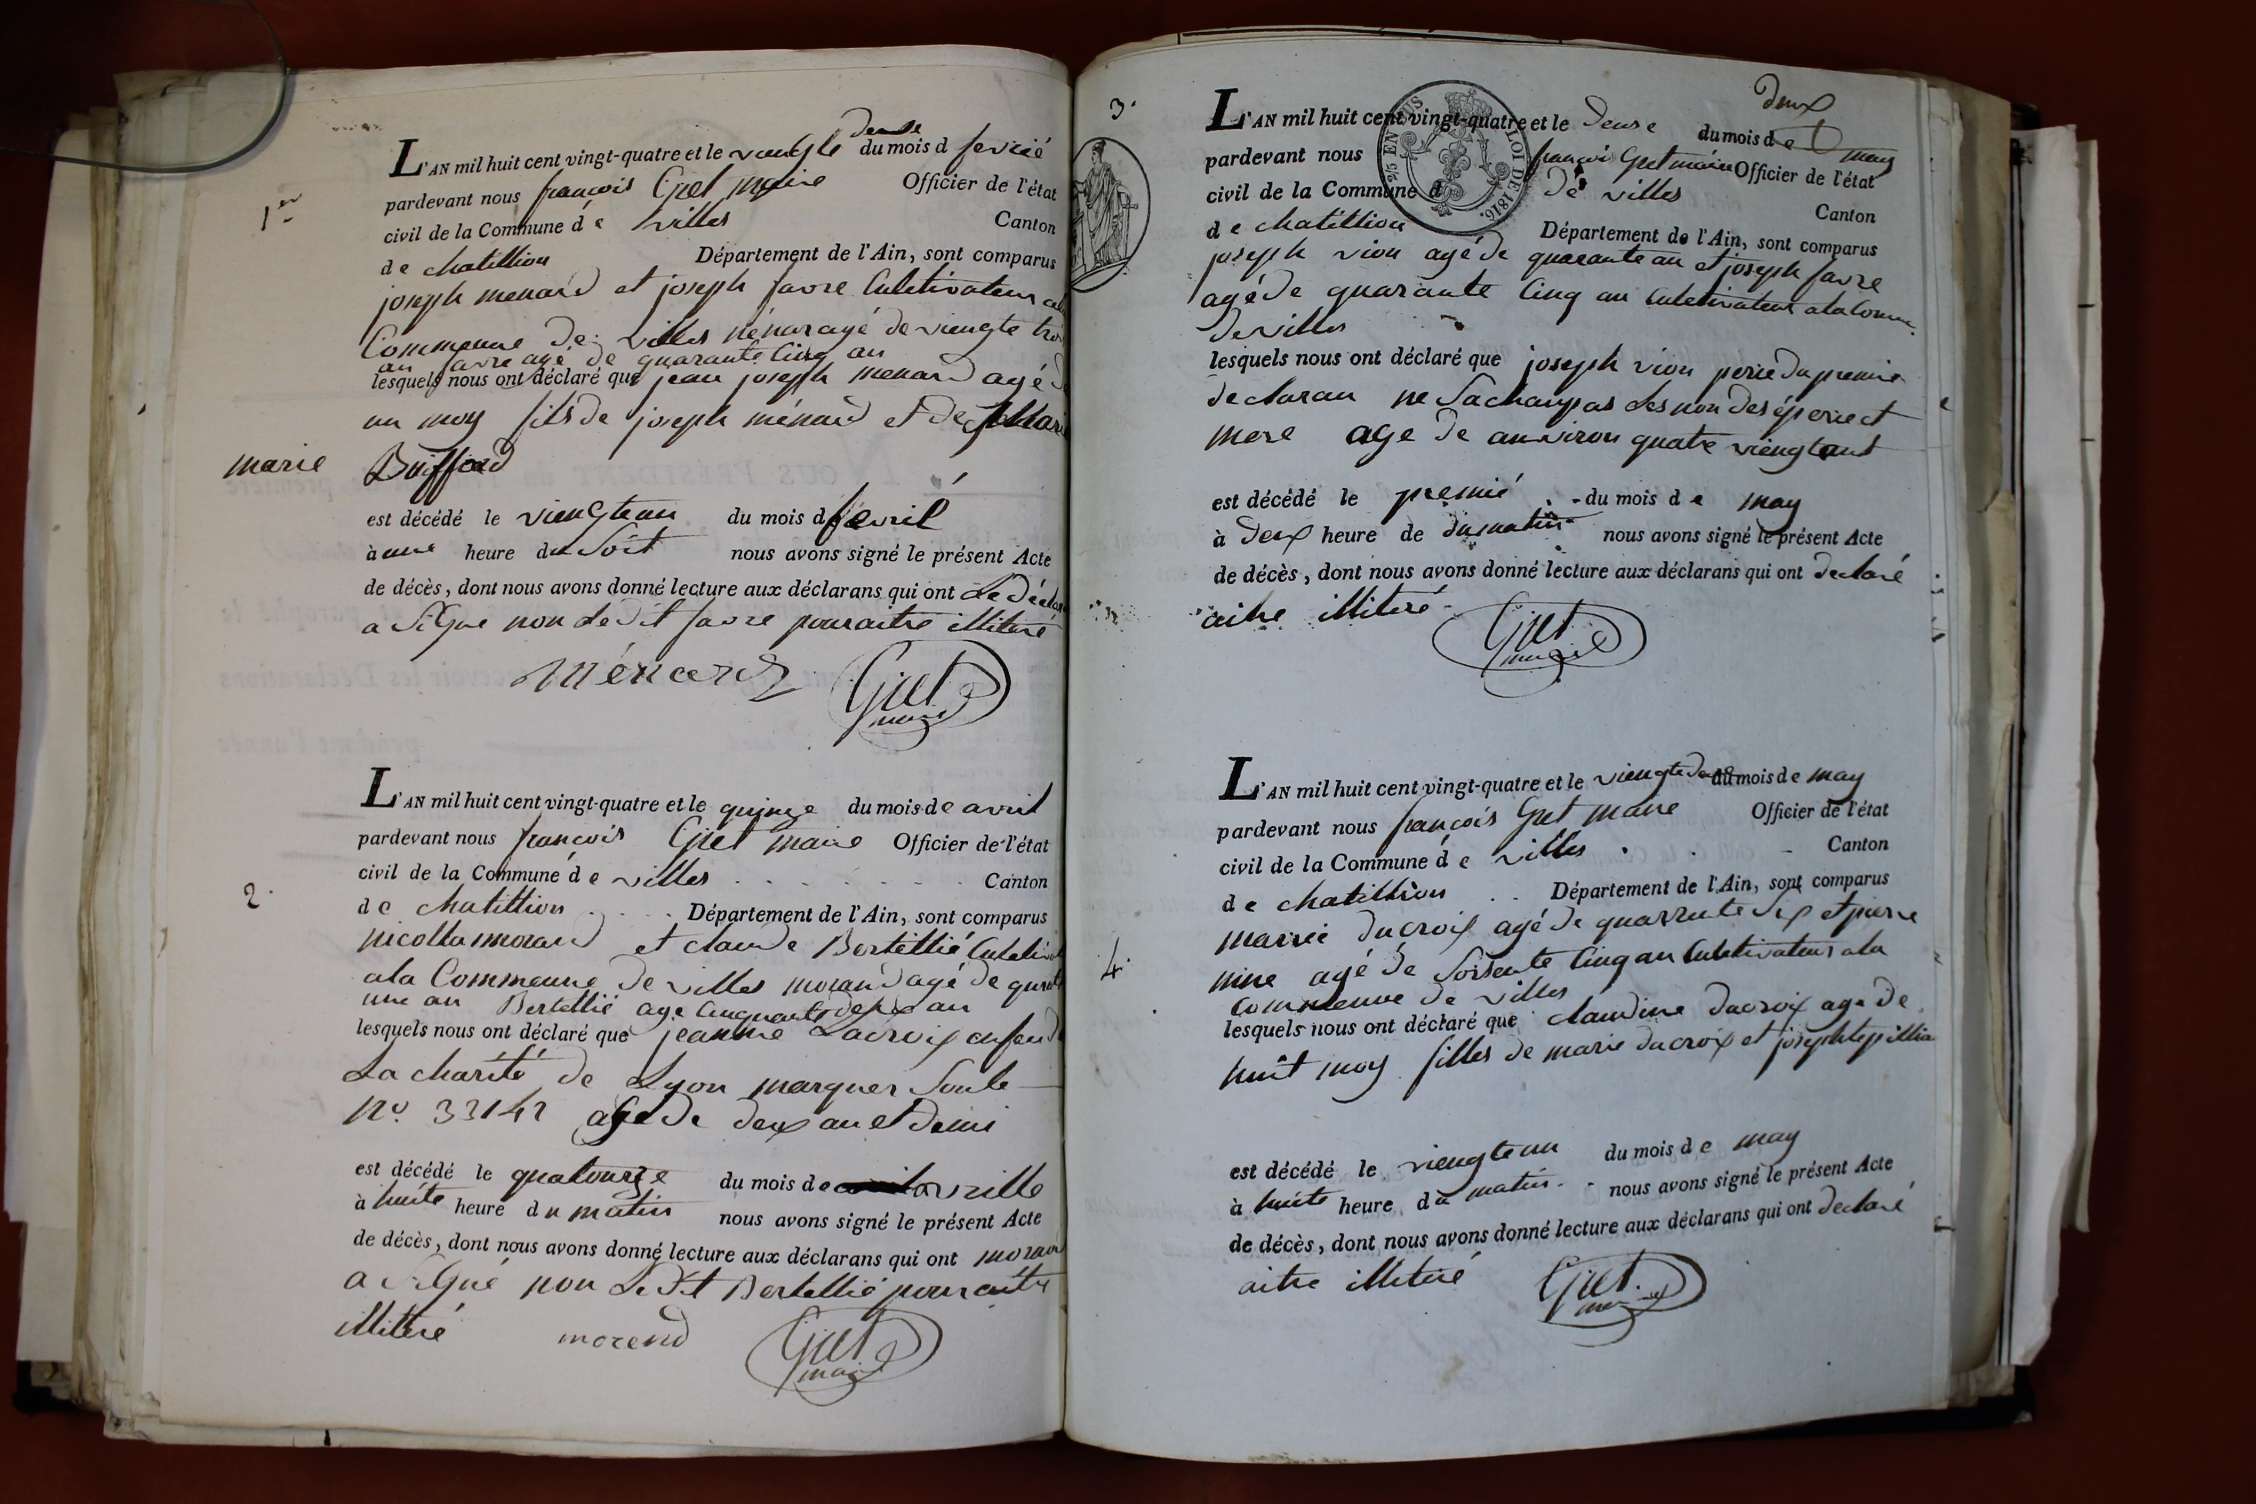 1er
L'AN mil huit cent vingt-quatre et le viengte deuse du mois d fevrié
pardevant nous françois Gret maire Officier de l'état
civil de la Commune dé e villes Canton
de chatillion Département de l'Ain, sont comparus
joseph menard et joseph favre Culetivateur a la
Commeune De villes ménar agé de viengte trois
an favre agé de quarante Cinq an
lesquels nous ont déclaré que jean joseph menard agé de
un moy fils de joseph ménard et de
marie Buffard
est décédé le viengteun du mois d fevril
à une heure du Soit nous avons signé le présent Acte
de décès, dont nous avons donné lecture aux déclarans qui ont Le Déclar
a Signé non Ledit favre pour aitre illitéré
ménard Gret
maire
L'AN mil huit cent vingt-quatre et le quinze du mois de avril
pardevant nous françois Gret maire Officier de l'état
civil de la Commune dé e villes Canton
2.
de chatillion Département de l'Ain, sont comparus
nicolla morand et claude Bertellié Culetivat
a la Commeune De villes morand agé de quarante
une an Bertellié age Cinquante deux an
lesquels nous ont déclaré que jeanne Lacroix enfend
La charité de Lyon marquer Soule
No. 33142 age De deux an et Demi
est décédé le quatourze du mois de avrille
à huite heure du matin nous avons signé le présent Acte
de décès, dont nous avons donné lecture aux déclarans qui ont moran
a Signé non Le Dit Bertellié pour aitre
illitéré morend Gret
maire
3.
L'AN mil huit cent vingt-quatre et le deuse du mois de may
deux
pardevant nous françois Gret maire Officier de l'état
civil de la Commune d De villes Canton
de chatillion Département de l'Ain, sont comparus
joseph vion agé de quarante an et joseph favre
agé de quarante Cinq an Culetivateur a la Comme.
De villes
lesquels nous ont déclaré que joseph vion perie du premié
declaran ne Sachanpas Les non des é perie et
mere age de anviron quatre viengt ant
est décédé le premié du mois de may
à deux heure de du matin nous avons signé le présent Acte
de décès, dont nous avons donné lecture aux déclarans qui ont declaré
aitre illitéré Gret
maire
2/5 EN SUS LOI DE 1816.
L'AN mil huit cent vingt-quatre et le viengte deuse du mois de may
pardevant nous françois Gret maire Officier de l'état
civil de la Commune dé e villes Canton
de chatillion Département de l'Ain, sont comparus
marrie ducroix agé de quarrente Six et pierre
4.
nine agé de Soisente Cinq an Culetivateur a la
commeune de villes
lesquels nous ont déclaré que claudine ducroix age de
huit moy filles de marie ducroix et joseph
est décédé le viengte un du mois de may
à huite heure du matin nous avons signé le présent Acte
de décès, dont nous avons donné lecture aux déclarans qui ont declaré
aitre illitéré Gret
maire